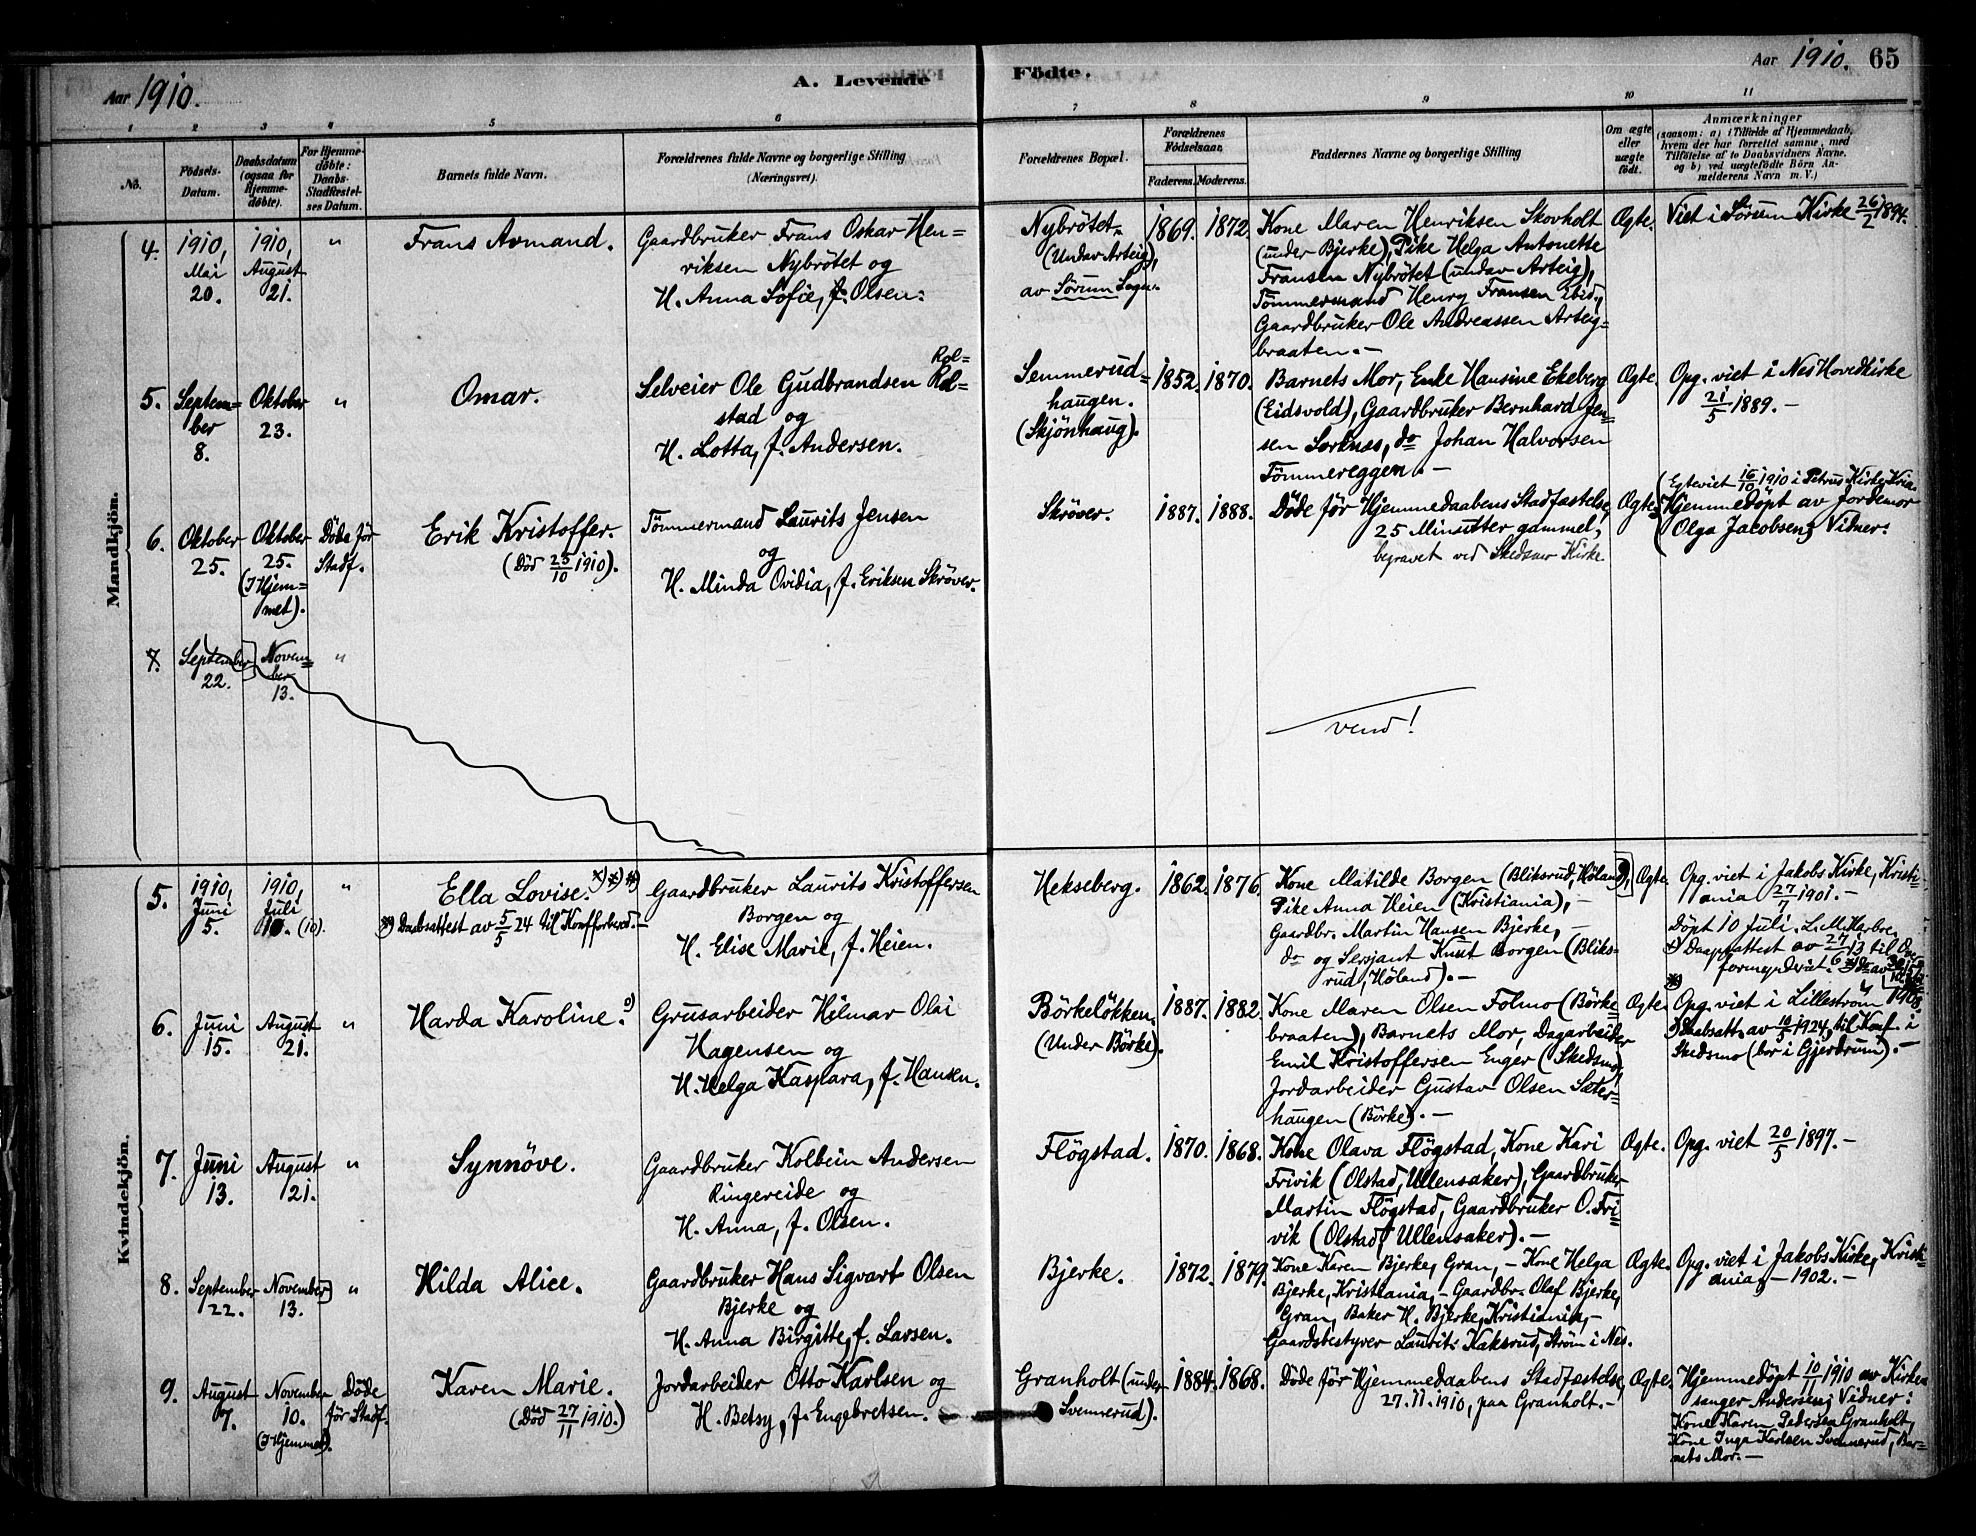 Aar 1910.
A. Levende
Födte.
Aar 1910. 65
1 2 3 4 5 6 7 8 9 10 11
No.
Födsels-
Datum.
Daabsdatum
(ogsaa for
Hjemme-
döbte).
For Hjemme-
döbte:
Daabs-
Stadfæstel-
ses Datum.
Barnets fulde Navn.
Forældrenes fulde Navne og borgerlige Stilling
(Næringsvei).
Forældrenes Bopæl.
Forældrenes
Födselsaar.
Faderens. Moderens.
Faddernes Navne og borgerlige Stilling
Om ægte
eller
uægte
födt.
Anmærkninger
(saasom: a) i Tilfælde af Hjemmedaab,
hvem der har forrettet samme, med
Tilföielse af to Daabsvidners Navne.
og b) ved uægtefödte Börn An-
melderens Navn m. V.)
Mandkjön.
4.
1910,
Mai
20.
1910,
August
21.
"
Frans Armand.
Gaardbruker Frans Oskar Hen=
riksen Nybrötet og
H. Anna Sofie, f. Olsen.
Nybrötet
(Undav Arteig),
av Sörum Sogn.
1869. 1872.
Kone Maren Henriksen Skovholt
(under Bjerke), Pike Helga Antonette
Fransen Nybrötet (undav Arteig),
Tömmermand Henry Fransen ibid.,
Gaardbruker Ole Andreassen Arteig=
braaten. —
Ægte.
Viet i Sörum Kirke 26/2 1894.
5.
Septem=
ber
8.
Oktober
23.
"
Omar.
Selveier Ole Gudbrandsen Rol=
Rol=
stad og
H. Lotta, f. Andersen.
Semmerud=
haugen.
(Skjönhaug).
1852. 1870.
Barnets Mor, Enke Hansine Ekeberg
(Eidsvold), Gaardbruker Bernhard Jen=
sen Sorknes, do Johan Halvorsen
Tömmereggen. —
Ægte.
Opg. viet i Nes Hovedkirke
21/5 1889. —
6.
Oktober
25.
Oktober
25.
(I Hjem=
met).
Döde för
Stadf.
Erik Kristoffer.
(Död 25/10 1910).
Tömmermand Laurits Jensen
og
H. Minda Ovidia, f. Eriksen Skröver.
Skröver.
1887. 1888.
Döde för Hjemmedaabens Stadfæstelse,
25 Minutter gammel,
begravet ved Skedsmo Kirke
Ægte.
(Egteviet 16/10 1910 i Petrus Kirke, Kria.
Hjemmedöpt av Jordemor
Olga Jacobsen; Vidner:
7.
September
22.
Novem=
ber
13.
"
vend!
Kvindekjön.
5.
1910,
Juni
5.
1910,
Juli
10. (10).
"
Ella Lovise. x) x) x)
x) Daabsattest av 5/5 24 til Konfforbered. —
Gaardbruker Laurits Kristoffersen
Borgen og
H. Elise Marie, f. Heien.
Hekseberg.
1862. 1876.
Kone Matilde Borgen (Bliksrud, Höland),
Pike Anna Heien (Kristiania), —
Gaardbr. Martin Hansen Bjerke, —
do og Sersjant Knut Borgen (Bliks=
rud, Höland). —
Ægte.
Opg. viet i Jakobs Kirke, Kristi=
ania 27/7 1901. —
Döpt 10 Juli.
6.
Juni
15.
August
21.
"
Harda Karoline. o)
Grusarbeider Hilmar Olai
Hagensen og
H. Helga Kaspara, f. Hansen.
Börkelökken
(Under Börke).
1887. 1882.
Kone Maren Olsen Folmo (Börke=
braaten), Barnets Mor, Dagarbeider
Emil Kristoffersen Enger (Skedsmo),
Jordarbeider Gustav Olsen Sæter=
haugen (Börke). —
Ægte.
Opg. viet i Lilleström 1908
o) Daabsatt. av 10/5 1924, til Konf. i
Skedsmo (bor i Gjerdrum). —
7.
Juni
13.
August
21.
"
Synnöve.
Gaardbruker Kolbein Andersen
Ringereide og
H. Anna, f. Olsen.
Flögstad.
1870. 1868.
Kone Olava Flögstad, Kone Kari
Frivik (Olstad, Ullensaker), Gaardbruker
Martin Flögstad, Gaardbruker O. Fri=
vik (Olstad, Ullensaker). —
Ægte.
Opg. viet 20/5 1897. —
8.
September
22.
November
13.
"
Hilda Alice.
Gaardbruker Hans Sigvart Olsen
Bjerke og
H. Anna Birgitte, f. Larsen.
Bjerke.
1872. 1879.
Kone Karen Bjerke, Gran, — Kone Helga
Bjerke, Kristiania, — Gaardbr. Olaf Bjerke,
Gran, Baker H. Bjerke, Kristiania, —
Gaardsbestyrer Laurits Kaksrud, Ström i Nes.
Ægte.
Opg. viet i Jakobs Kirke, Kristi=
ania, — 1902. —
9.
August
7.
November
10.
(I Hjemmet).
Döde
för Stadf.
Karen Marie.
(Död 27/11 1910.)
Jordarbeider Otto Karlsen og
H. Betsy, f. Engebretsen.
Granholt (under
Svennerud).
1884. 1868.
Döde för Hjemmedaabens Stadfæstelse
27.11.1910, paa Granholt. —
Ægte.
Hjemmedöpt 10/11 1910 av Kirke=
sanger Andersen; Vidner:
Kone Karen Pedersen Granholt,
Kone Inga Karlsen Svennerud, Bar=
nets Mor. —